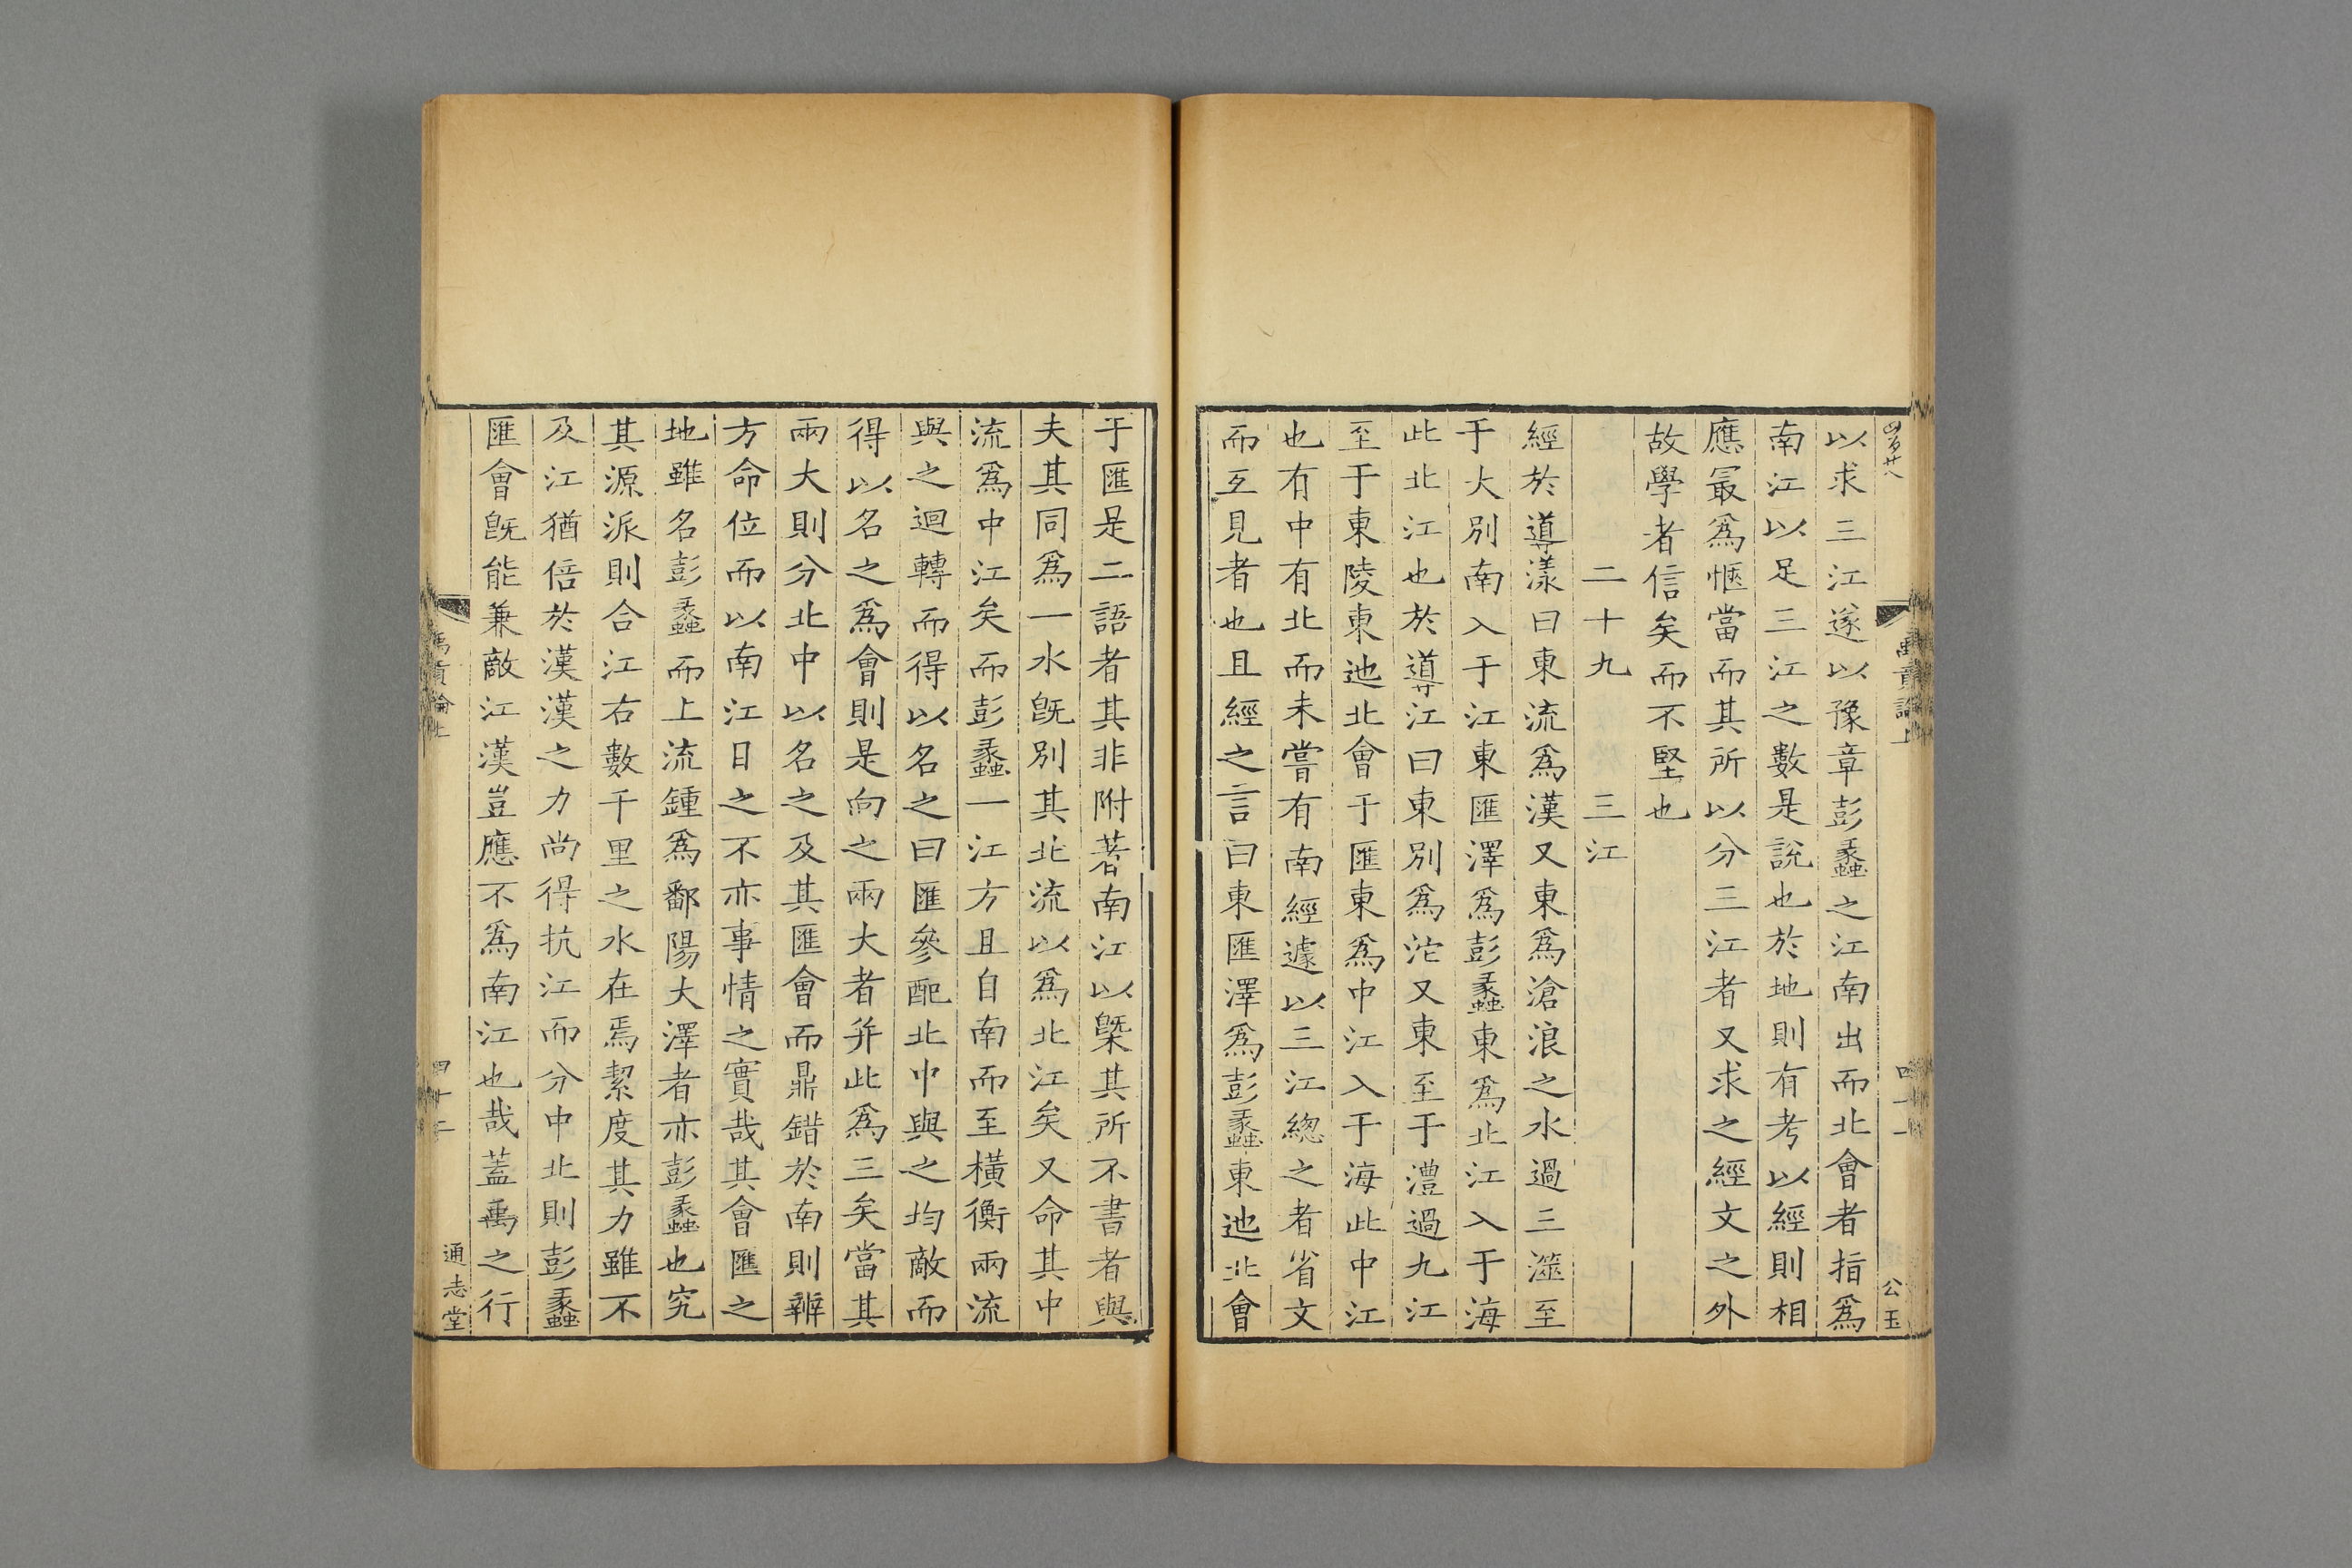 禹貢論上
公玉
以求三江遂以豫章彭蠡之江南出而北會者指爲
南江以足三江之數是說也於地則有考以經則相
應最爲愜當而其所以分三江者又求之經文之外
故學者信矣而不堅也
二十九　三江
經於導漾曰東流爲漢又東爲滄浪之水過三澨至
于大別南入于江東匯澤爲彭蠡東爲北江入于海
此北江也於導江曰東別爲沱又東至于澧過九江
至于東陵東迆北會于匯東爲中江入于海此中江
也有中有北而未嘗有南經遽以三江總之者省文
而互見者也且經之言曰東匯澤爲彭蠡東迆北會
于匯是二語者其非附著南江以槩其所不書者與
夫其同爲一水旣別其北流以爲北江矣又命其中
流爲中江矣而彭蠡一江方且自南而至橫衡兩流
與之迴轉而得以名之曰匯參配北中與之均敵而
得以名之爲會則是向之兩大者并此爲三矣當其
兩大則分北中以名之及其匯會而鼎錯於南則辨
方命位而以南江目之不亦事情之實哉其會匯之
地雖名彭蠡而上流鍾爲鄱陽大澤者亦彭蠡也究
其源派則合江右數千里之水在焉絜度其力雖不
及江猶倍於漢漢之力尚得抗江而分中北則彭蠡
匯會旣能兼敵江漢豈應不爲南江也哉蓋禹之行
禹貢論上
四十二
通志堂